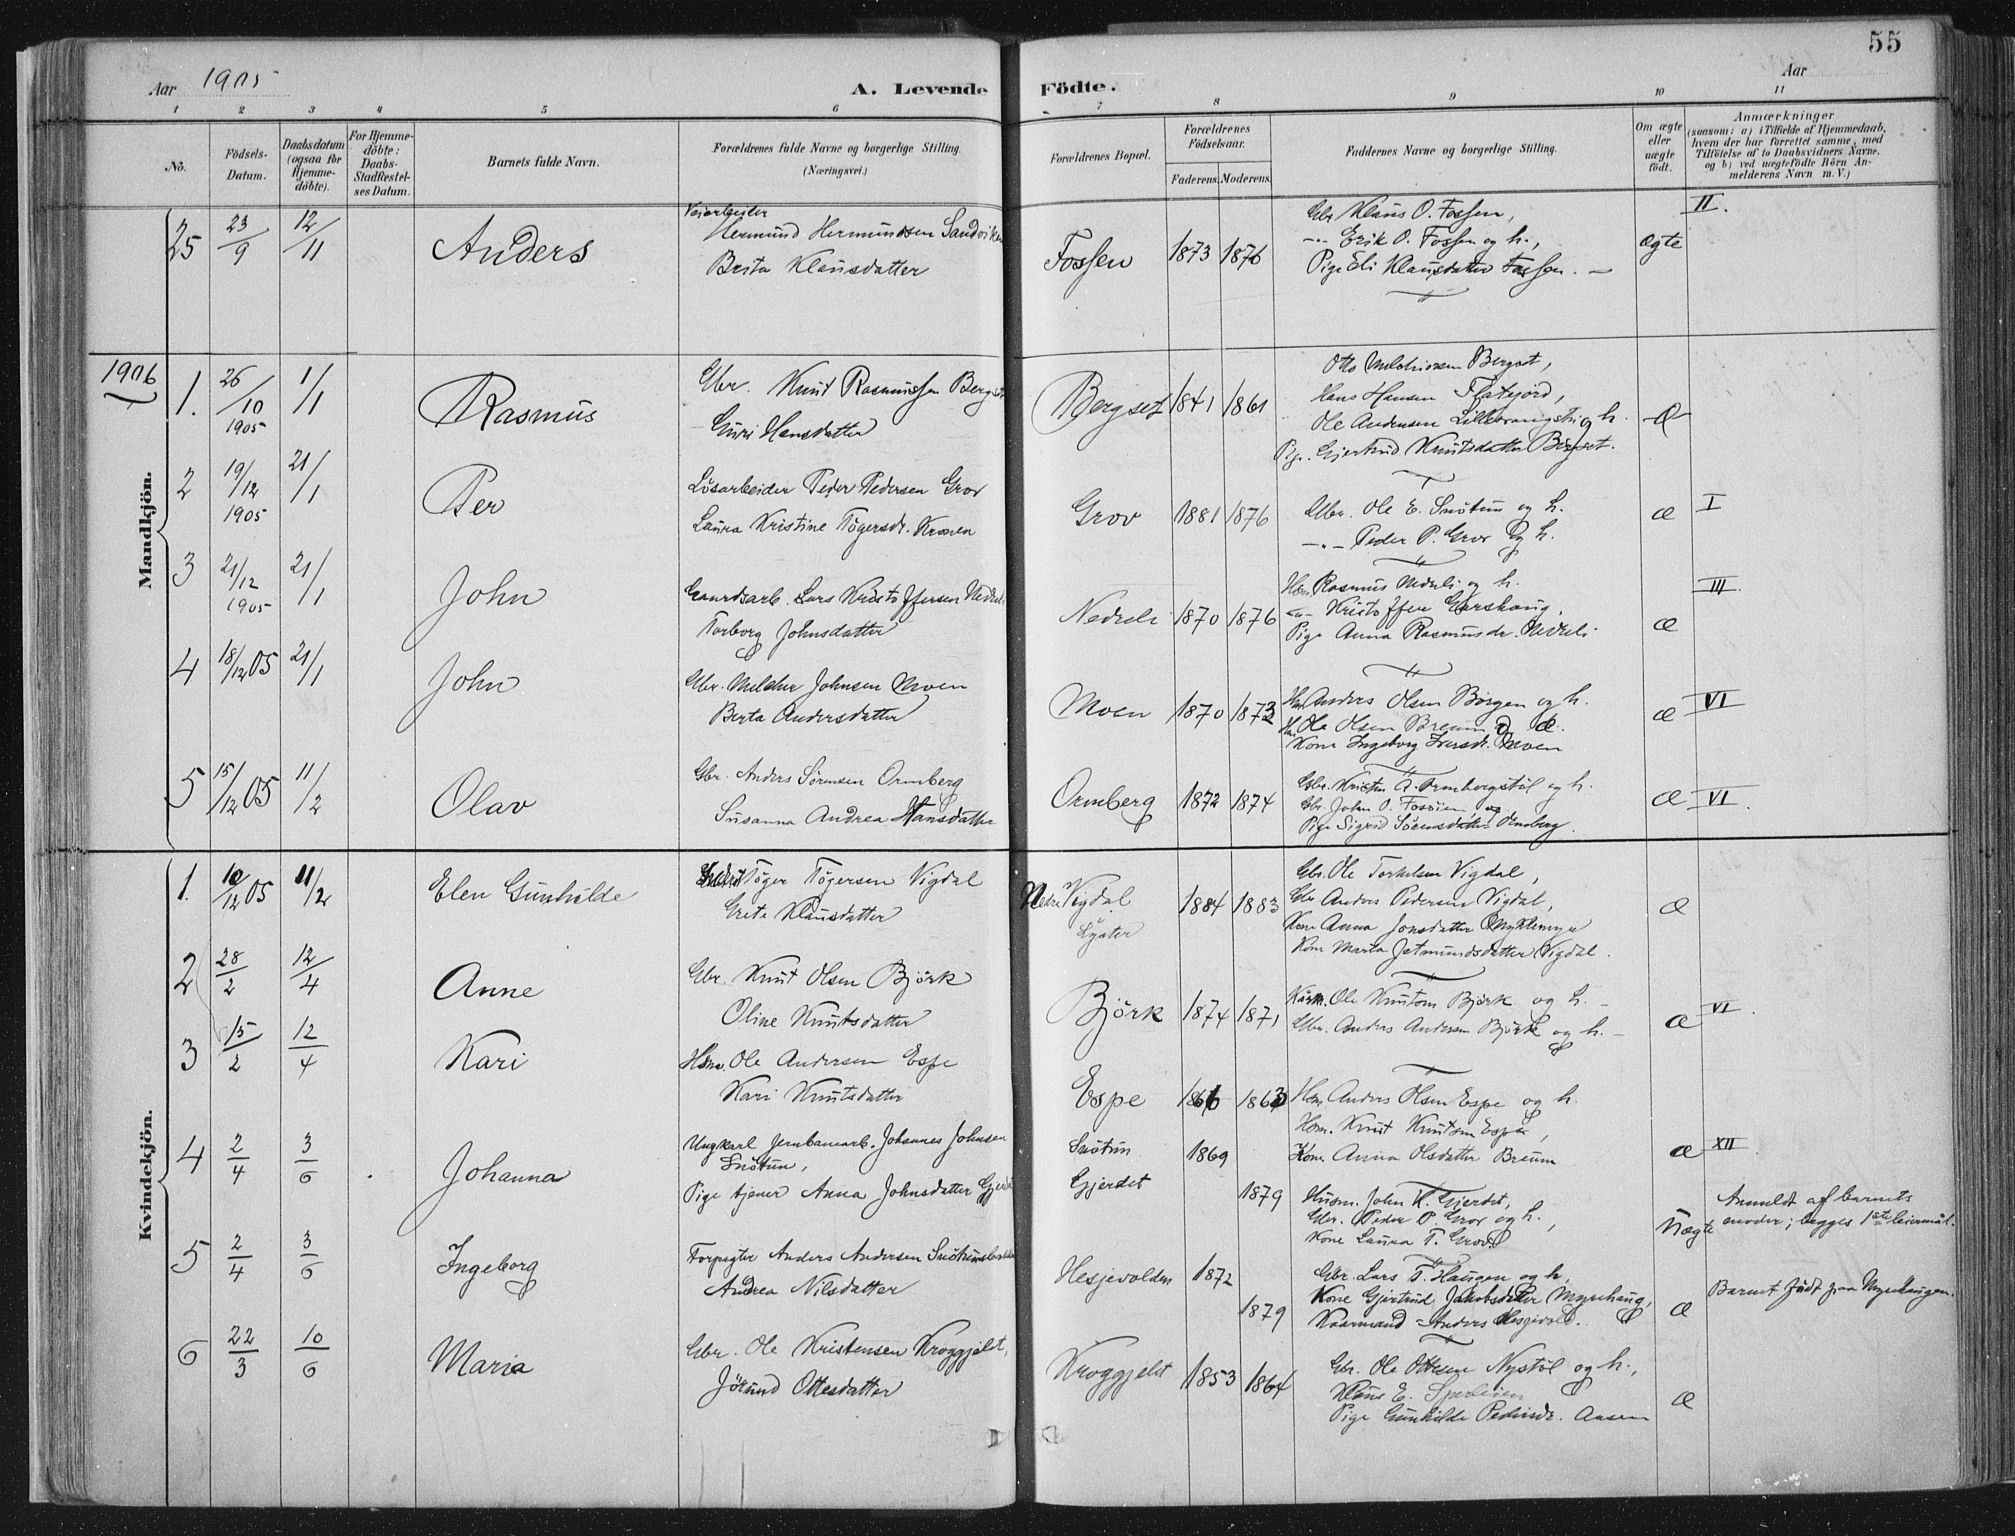 55
Aar 1905
A. Levende Födte.
Aar
1 2 3 4 5 6 7 8 9 10 11
No.
Födsels-Datum.
Daabsdatum (ogsaa for Hjemme-döbte).
For Hjemme-döbte: Daabs-Stadfæstel-ses Datum.
Barnets fulde Navn.
Forældrenes fulde Navne og borgerlige Stilling.
(Næringsvei.)
Forældrenes Bopæl.
Forældrenes Födselsaar.
Faderens. Moderens.
Faddernes Navne og borgerlige Stilling.
Om ægte eller uægte födt.
Anmærkninger
(saasom: a) i Tilfælde af Hjemmedaab,
hvem der har forrettet samme, med
Tilföielse af to Daabsvidners Navne,
og b) ved uægtefödte Börn An-
melderens Navn m. V.)
25 23/9 12/11 Anders
Veiarbeider
Hermund Hermundsen Sandvik
Brita Klausdatter
Fossen 1873 1876
Gbr Klaus O. Fossen,
-"- Erik O. Fossen og h.,
Pige Eli Klausdatter Fossen. —
ægte II.
1906
Mandkjön.
1. 26/10 1905 1/1 Rasmus
Gbr. Knut Rasmussen Bergset
Guri Hansdatter
Bergset 1841 1861
Otto Melchiorsen Bergset,
Hans Hansen Flatejord,
Ole Andersen og h.
Pige. Gjertrud Knutsdatter Bergset.
Æ
2 19/12 1905 21/1 Per
Lösarbeider Peder Pedersen Grov
Laura Kristine Tögersdr. Kronen
Grov 1881 1876
Gbr. Ole E. Snötun og h.
-"- Peder P. Grov og h.
æ I
3 21/12 1905 21/1 John
Gaardsarb. Lars Kristoffersen Nedreli
Torborg Johnsdatter
Nedreli 1870 1876
Hm. Rasmus Nedreli og h.
-"- Kristoffer Gjershaug.
Pige Anna Rasmusdr. Nedreli
æ III
4 18/12 05 21/1 John
Gbr. Melcher Johnsen Moen
Berta Andersdatter
Moen 1870 1873
Hm Anders Olsen Börgen og h.
Hm Ole Olsen Breum og h.
Kone Ingeborg Iversdr. Moen
æ VI
5 15/12 05 11/2 Olav
Gbr. Anders Sörensen Ormberg
Susanna Andrea Hansdatter
Ormberg 1872 1874
Gbr. Kristen A. Ormbergstöl og h.
Gbr John O. Fosöien og
Pige Sigrid Sörensdatter Ormberg.
Æ VI.
Kvindekjön.
1. 10/12 05 11/2 Elen Gunhilde
Töger Tögersen Vigdal
Grete Klausdatter
Nedre Vigdal
Lyster
1884 1883
Gbr. Ole Torkelsen Vigdal,
Gbr Anders Pedersen Vigdal,
Kone Anna Jonsdatter Myklemyr
Kone Marta Jetmundsdatter Vigdal.
Æ
2 28/2 12/4 Anne
Gbr. Knut Olsen Björk
Oline Knutsdatter
Björk 1874 1871
Kaarm. Ole Knutsen Björk og h. —
Gbr. Anders Andersen Björk og h. —
Æ VI.
3 15/2 12/4 Kari
Hsm. Ole Andersen Espe
Kari Knutsdatter
Espe 1861 1863
Hm. Anders Olsen Espe og h.
Hsm. Knut Knutsen Espe,
Kone Anna Olsdatter Breum
æ XII
4 2/4 3/6 Johanna
Ungkarl Jernbanearb. Johannes Johnsen
Snötun,
Pige tjener Anna Johnsdatter Gjerdet
Snötun 1869
Gjerdet 1879
Husm. John K. Gjerdet,
Gbr. Peder P. Grov og h.,
Kone Laura T. Grov
Uægte
Anmeldt af barnets
moder; begges 1ste leiermål.
5 2/4 3/6 Ingeborg
Forpagter Anders Andersen
Andrea Nilsdatter
Hesjevolden 1872 1879
Gbr. Lars T. Haugen og h,
Kone Gjertrud Jakobsdatter Myrehaug,
Kaarmand Anders Hesjevold.
Æ
Barnet födt paa Myrehaugen.
6 22/3 10/6 Maria
Gbr. Ole Kristensen Kroggjelet,
Jörund Ottesdatter
Kroggjelet 1853 1864
Gbr. Ole Ottesen Nystöl og h.,
Klaus E.
Pige Gunhilde Pedersdr. Aasen
Æ